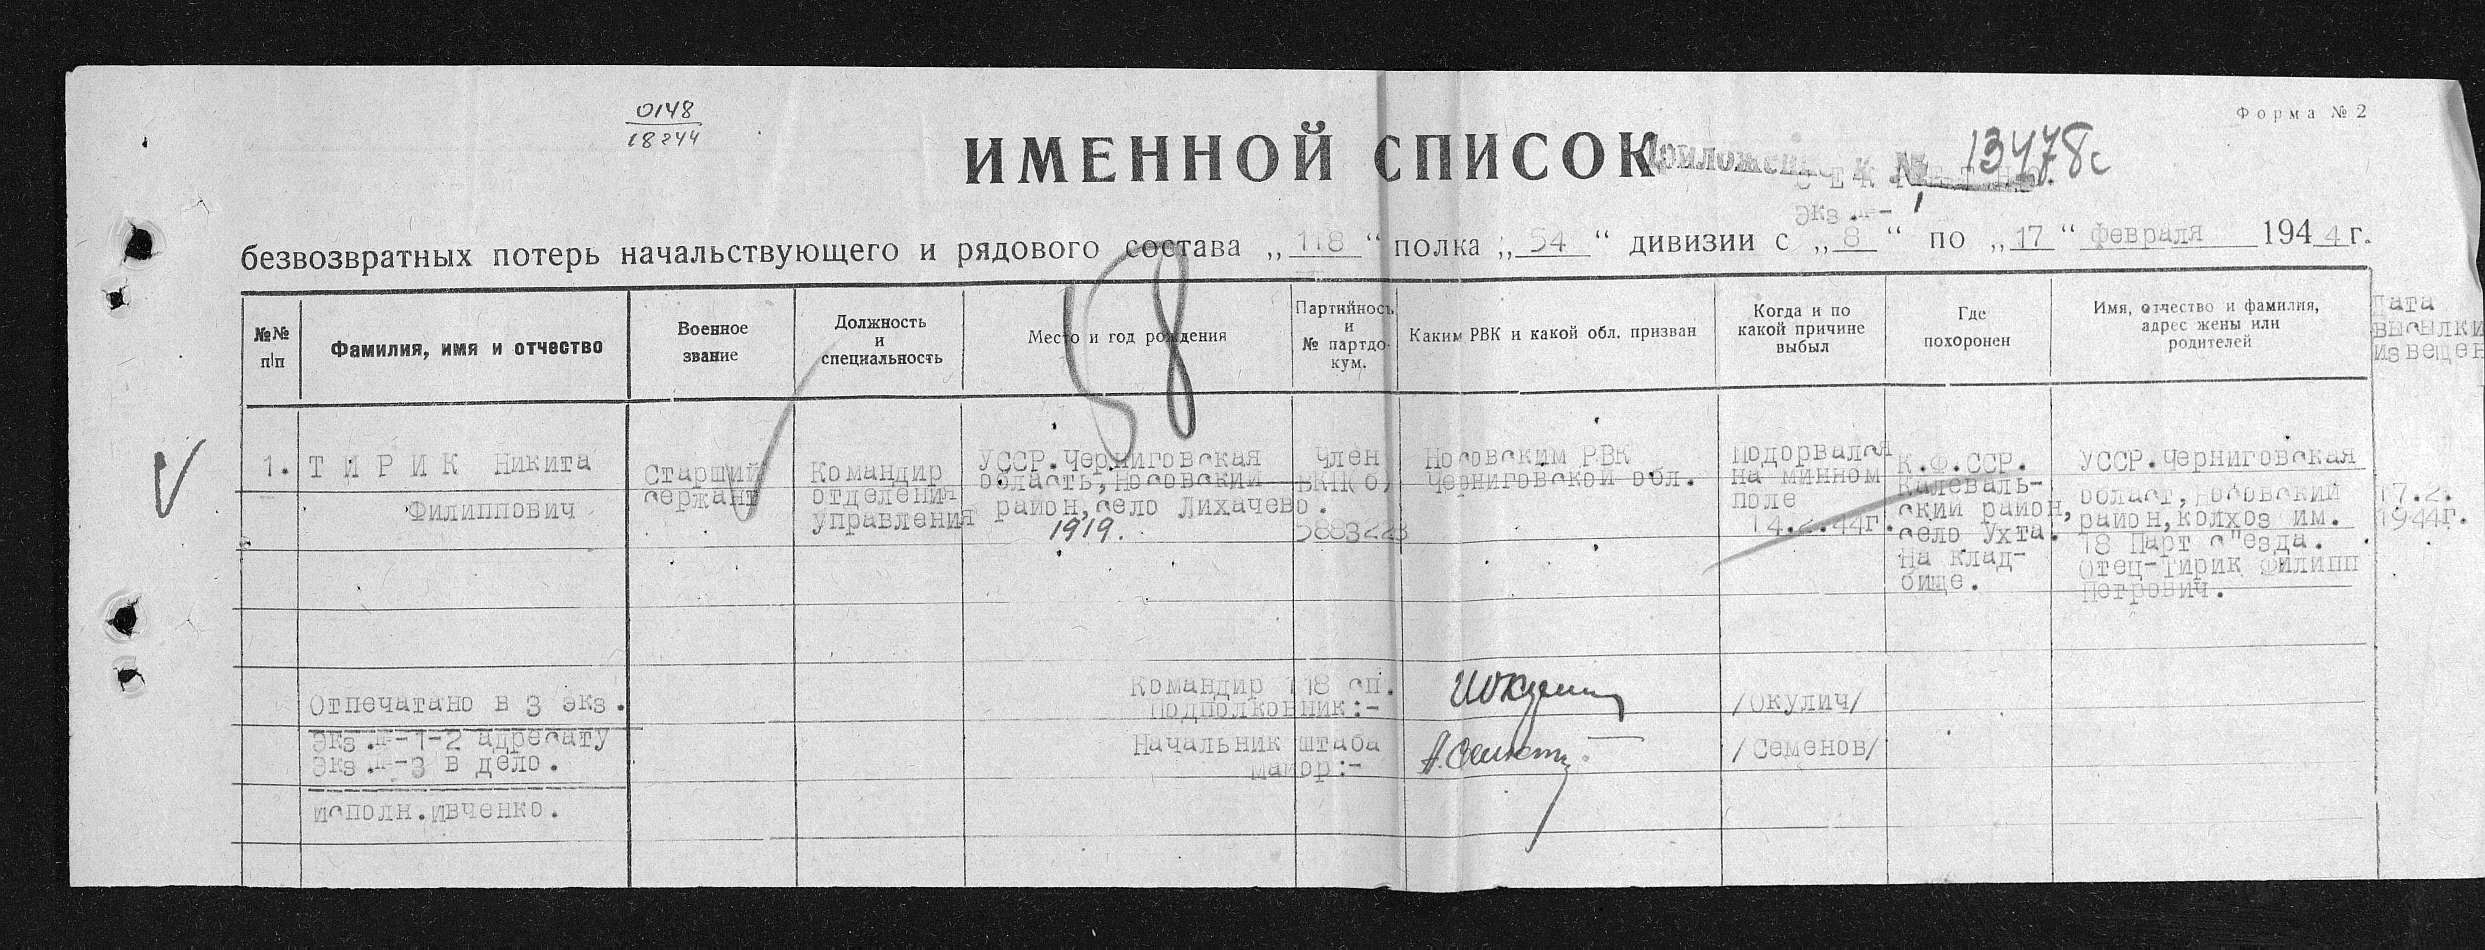 Форма № 2
0148
18244
ИМЕННОЙ СПИСОК
Приложение к № 13478с
СЕКРЕТНО.
Экз.№-1
безвозвратных потерь начальствующего и рядового состава „118“ полка „54“ дивизии с „8“ по „17“ февраля 1944 г.
58
№№ п/п
Фамилия, имя и отчество
Военное звание
Должность и специальность
Место и год рождения
Партийность и № партдокум.
Каким РВК и какой обл. призван
Когда и по какой причине выбыл
Где похоронен
Имя, отчество и фамилия, адрес жены или родителей
Дата высылки извещен
1.
ТИРИК Никита
Филиппович
Старший
сержант
Командир
отделения
управления
УССР.Черниговская
область,Носовский
район,село Лихачево.
1919.
Член
ВКП(б)
5883223
Носовским РВК
Черниговской обл.
Подорвался
на минном
поле
14.2.44г.
К.Ф.ССР.
Калеваль-
ский район,
село Ухта.
На клад-
бище.
УССР.Черниговская
област,Носовский
район,колхоз им.
18 Парт с"езда.
Отец-Тирик Филипп
Петрович.
17.2.
1944г.
Командир 118 сп.
Подполковник:-
/Окулич/
Начальник штаба
Майор:-
/Семенов/
Отпечатано в 3 экз.
Экз.№-1-2 адресату
Экз.№-3 в дело.
исполн.Ивченко.